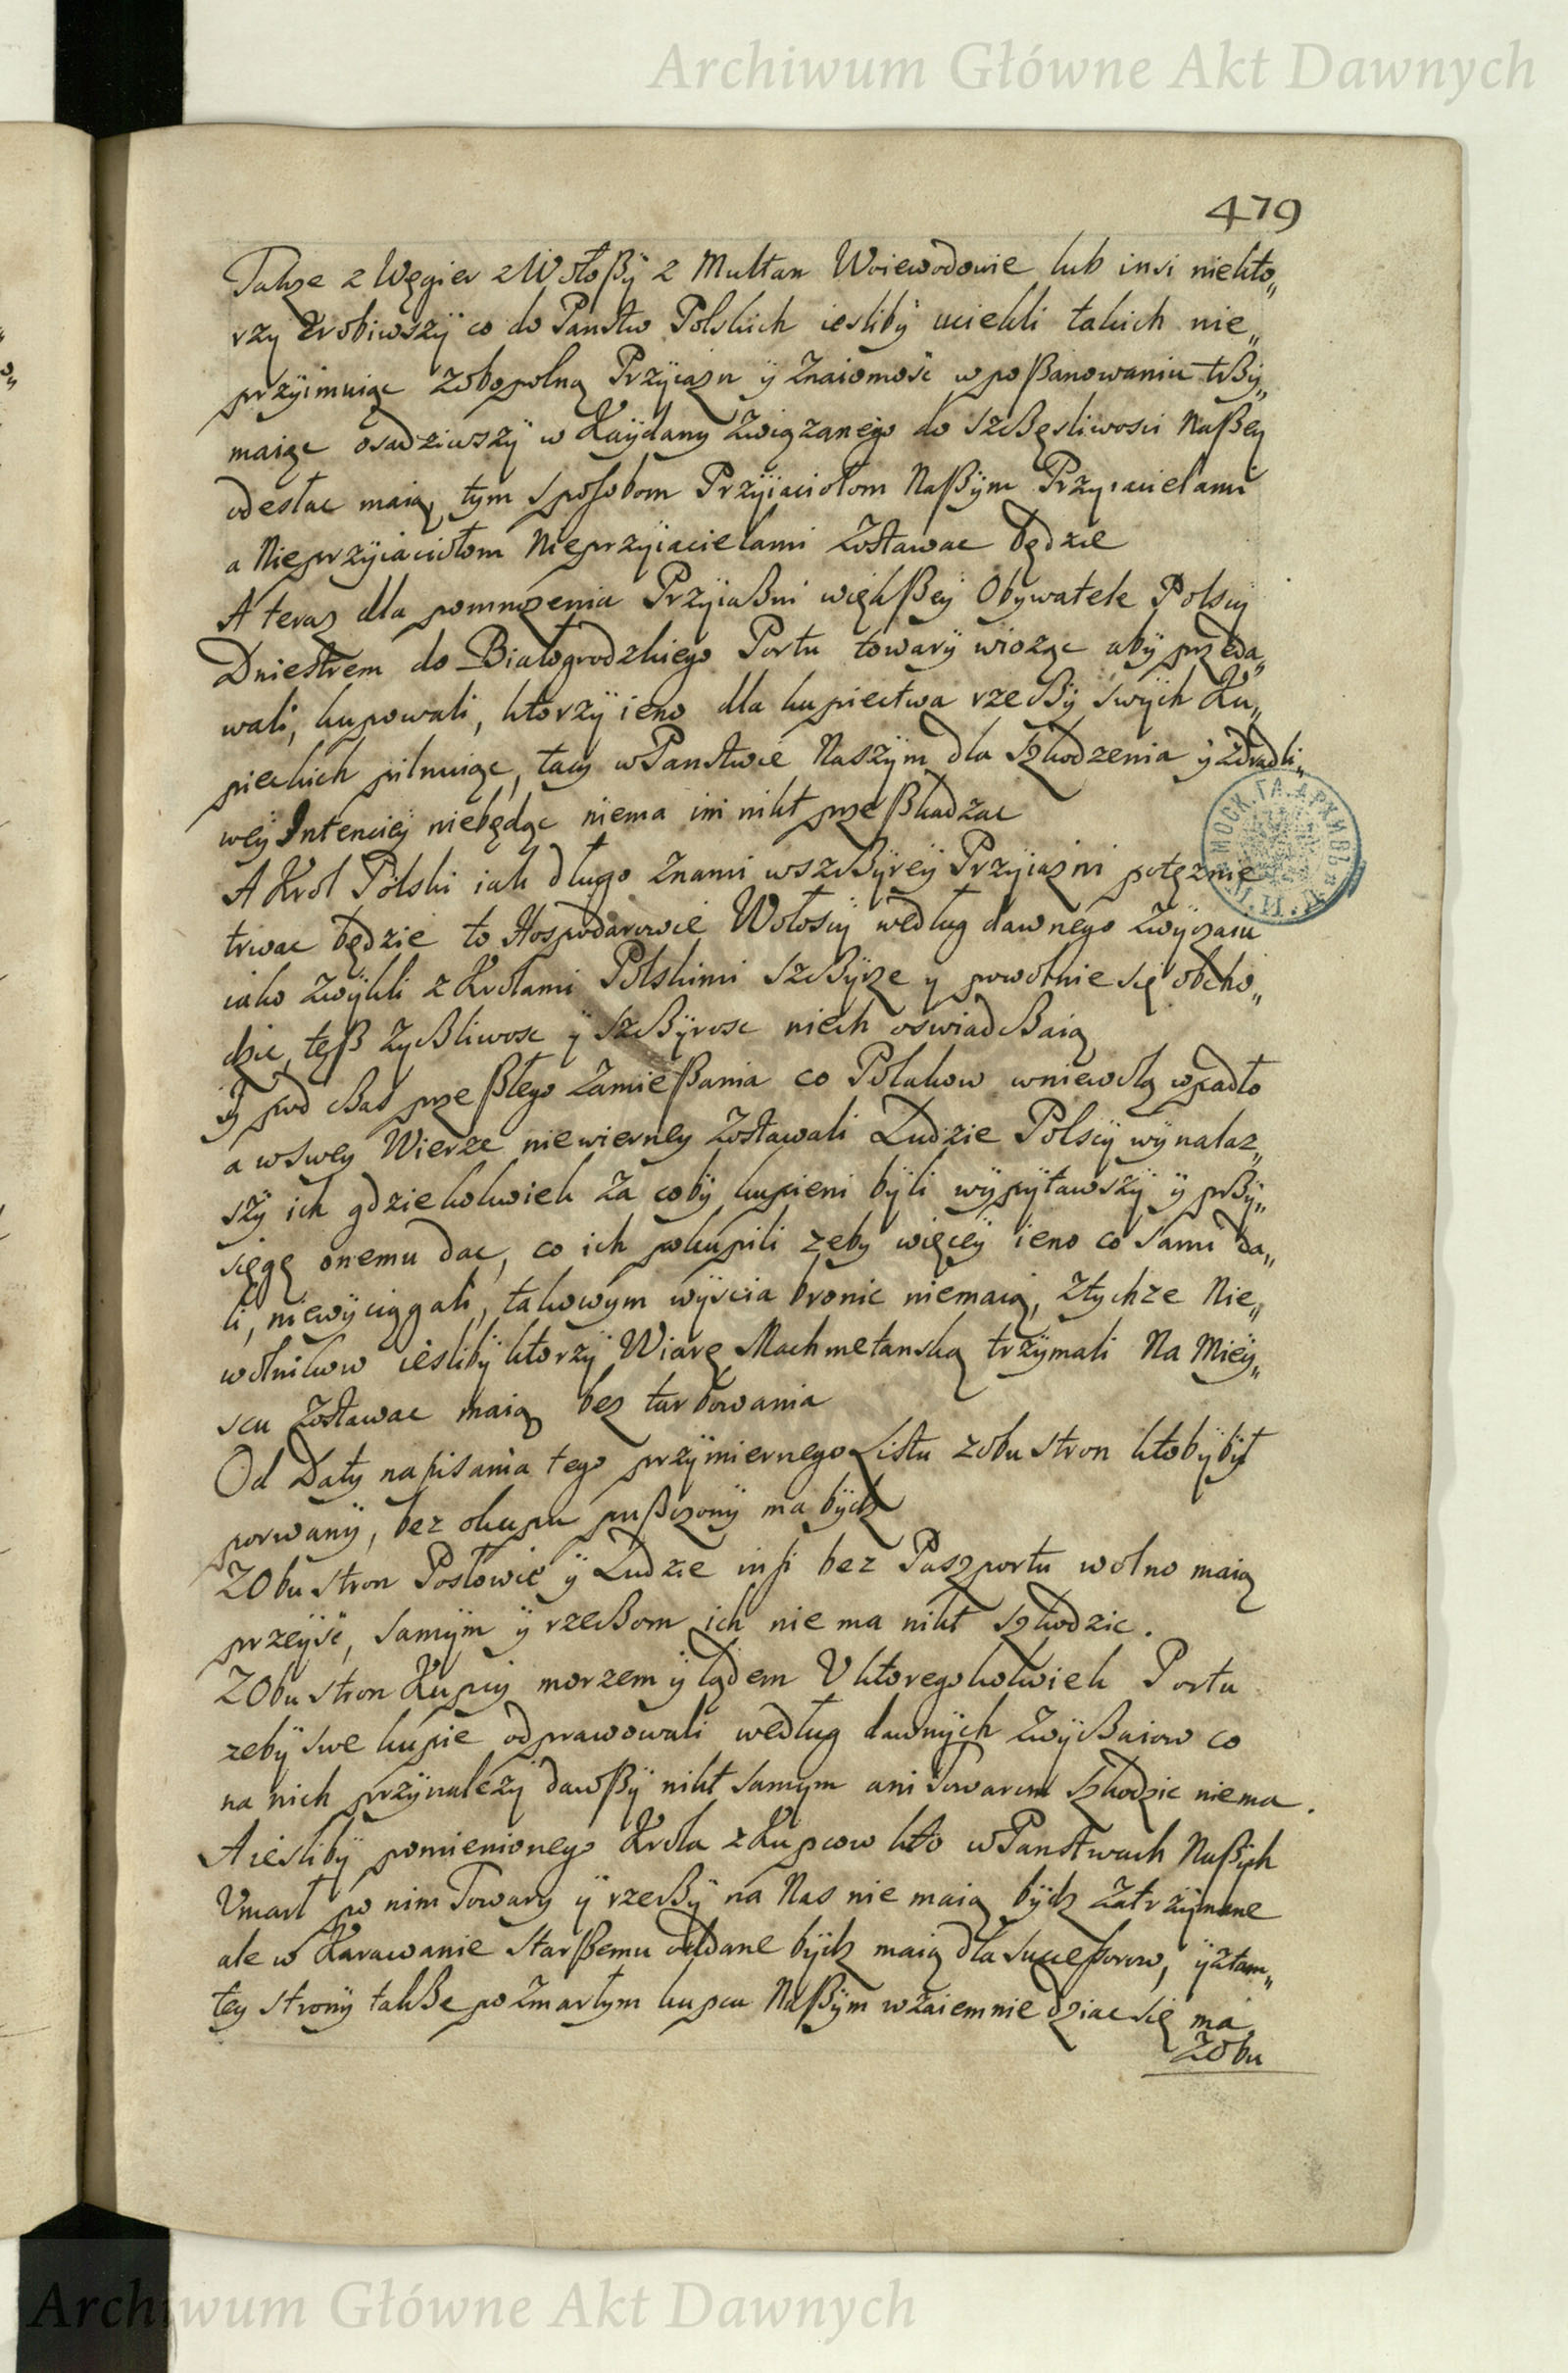 Archiwum Główne Akt Dawnych
479
Takze z Węgier z Wołoßÿ z Multan Woiewodowie lub insi niekto„
rzy zrobiwszÿ co do Panstw Polskich iesliby uciekli takich nie„
przyimuiąc zobopolną Przyiazn ÿ Znaiomosc w poßanowaniu trßÿ„
maiąc osadziwszÿ w Kaÿdany związanego do szcßęsliwosci Naßeÿ
odesłac maią, tym sposobom Przÿiaciołom Naßÿm Przyiacielami
a Nieprzÿiaciołom Nieprzyiacielami zostawac będzie
A teraz dla pomnozenia Przÿiaßni więkßeÿ Obywatele Polscy
Dniestrem do Białogrodzkiego Portu towarÿ wioząc abÿ przeda„
wali, kupowali, ktorzÿ ieno dla kupiectwa rzecßÿ swÿch Ku„
pieckich pilnuiąc, tacy w Panstwie Naszÿm dla szkodzenia ÿ zdradli„
weÿ Intencieÿ niebędąc niema im nikt przeßkadzac
A Krol Polski iak długo znami wszcßÿreÿ Przÿiazni potęznie
trwac będzie to Hospodarowie Wołoscy według dawnego zwÿczaiu
iako zwÿkli z Krolami Polskimi szcßÿrze y powolnie się obcho„
dzic, teß zycßliwosc ÿ szcßÿrosc niech oswiadcßaią
Iz pod cßas przeßłego zamießania co Polakow wniewolą wpadło
a wswey Wierze niewierney zostawali Ludzie Polscÿ wÿnalaz„
szÿ ich gdziekolwiek za cobÿ kupieni bÿli wÿpÿtawszÿ ÿ prßÿ„
sięgę onemu dac, co ich pokupili zeby więceÿ ieno co sami da„
li, niewÿciągali, takowym wÿscia bronic niemaią, ztychze Nie„
wolnikow ieslibÿ ktorzÿ Wiarę Machmetanską trzÿmali Na Mieÿ„
scu zostawac maią bez turbowania
Od Daty napisania tego przÿmiernego Listu zobu stron ktobÿ bÿł
porwanÿ, bez okupu pußczonÿ ma bÿdz
Zobu stron Posłowie ÿ Ludzie inßi bez Paszportu wolno maią
przeÿsc, samÿm ÿ rzecßom ich nie ma nikt szkodzic.
Zobu stron Kupcy morzem ÿ lądem U ktoregokolwiek Portu
zebÿ swe kupie odprawowali według dawnÿch zwÿcßaiow co
na nich przÿnalezÿ dawßÿ nikt samym ani Towarom szkodzic niema.
A ieslibÿ pomienionego Krola z Kupcow kto w Panstwach Naßÿch
Umarł po nim Towary ÿ rzecßÿ na Nas nie maią bÿdz zatrzÿmane
ale w Karawanie Starßemu oddane bÿdz maią dla sukceßorow, ÿ ztam„
teÿ stronÿ takße po zmarłym kupcu Naßÿm wzaiemnie dziac się ma,
Zobu
МОСК. ГЛ. АРХИВЪ
Archiwum Główne Akt Dawnych